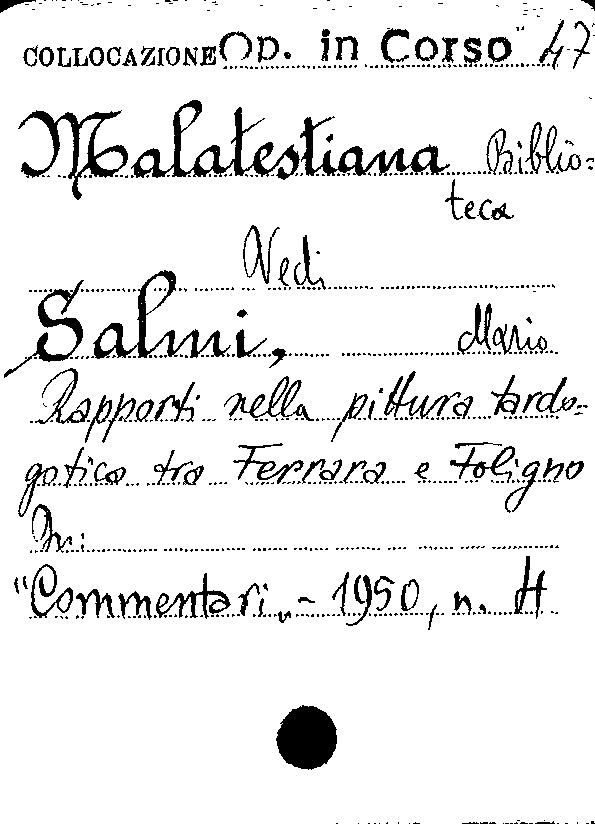 COLLOCAZIONE Op. in Corso" 47
Malatestiana Biblio=
teca
Vedi
Salmi, Mario
Rapporti nella pittura tardo=
gotica tra Ferrara e Foligno
In:
"Commentari„ - 1950, n. 4